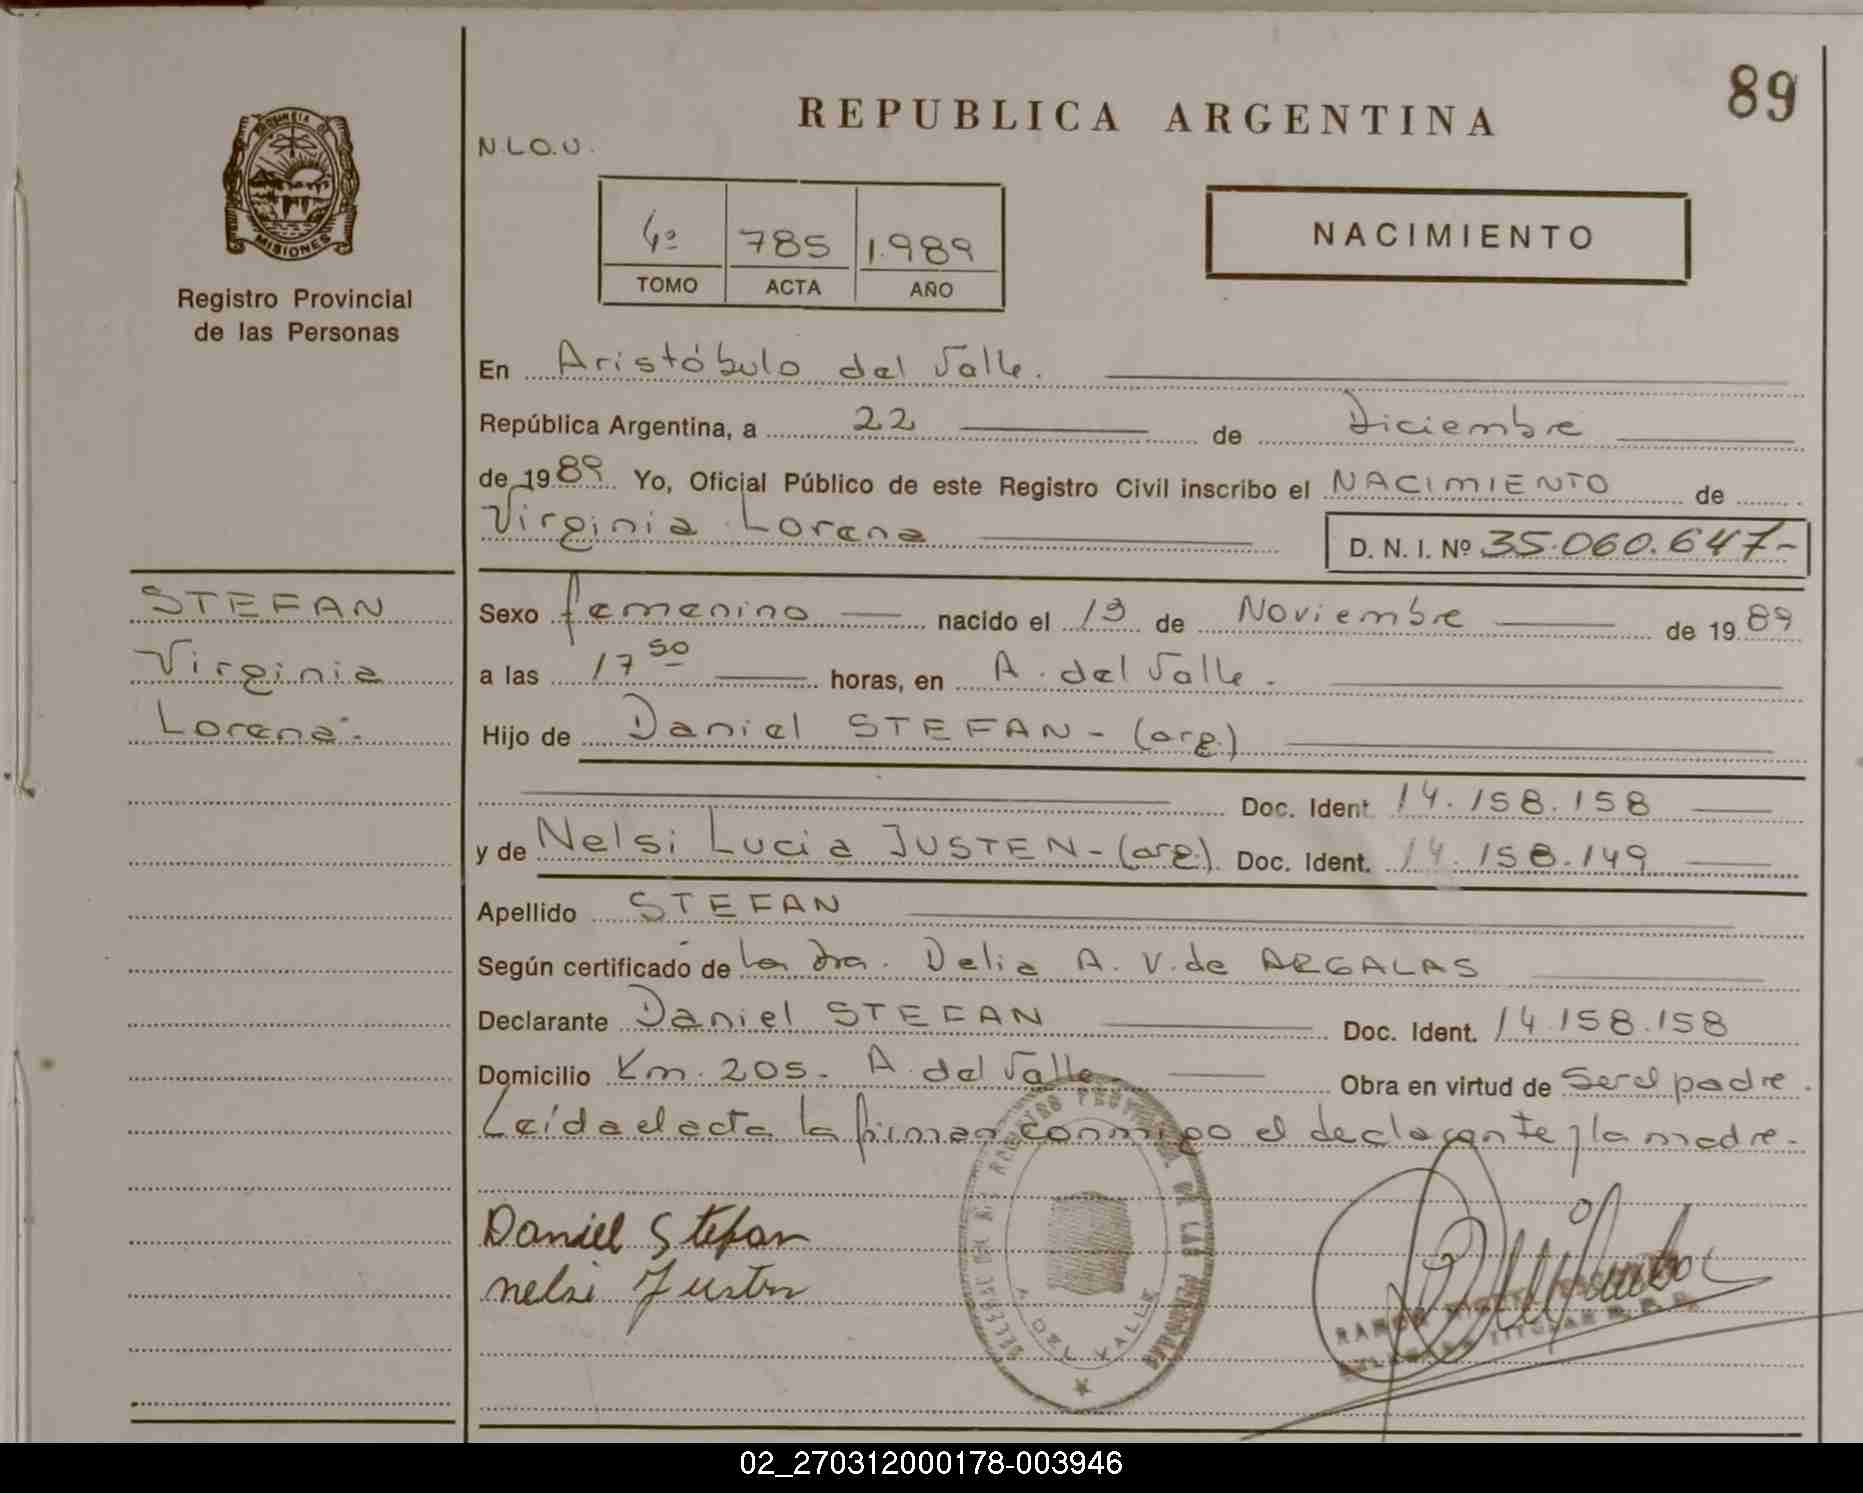 89
REPUBLICA ARGENTINA
N.L.O.U.
PROVINCIA DE
MISIONES
Registro Provincial
de las Personas
4º 785 1.989
TOMO ACTA AÑO
NACIMIENTO
En Aristóbulo del Valle.
República Argentina, a 22 de Diciembre
de 1989 Yo, Oficial Público de este Registro Civil inscribo el NACIMIENTO de
Virginia Lorena D. N. I. Nº 35.060.647-
STEFAN
Virginia
Lorena.-
Sexo femenino nacido el 19 de Noviembre de 1989
a las 17 50 horas, en A. del Valle.
Hijo de Daniel STEFAN - (arg.)
Doc. Ident. 14.158.158
y de Nelsi Lucia JUSTEN - (arg.) Doc. Ident. 14.158.149
Apellido STEFAN
Según certificado de la Dra. Delia A. V. de ARGALAS
Declarante Daniel STEFAN Doc. Ident. 14.158.158
Domicilio Km. 205. A. del Valle Obra en virtud de ser el padre.
Leída el acta la firman conmigo el declarante y la madre.-
Daniel Stefan
nelsi Justen
A. DEL VALLE
RAMON
TITULAR
02_270312000178-003946